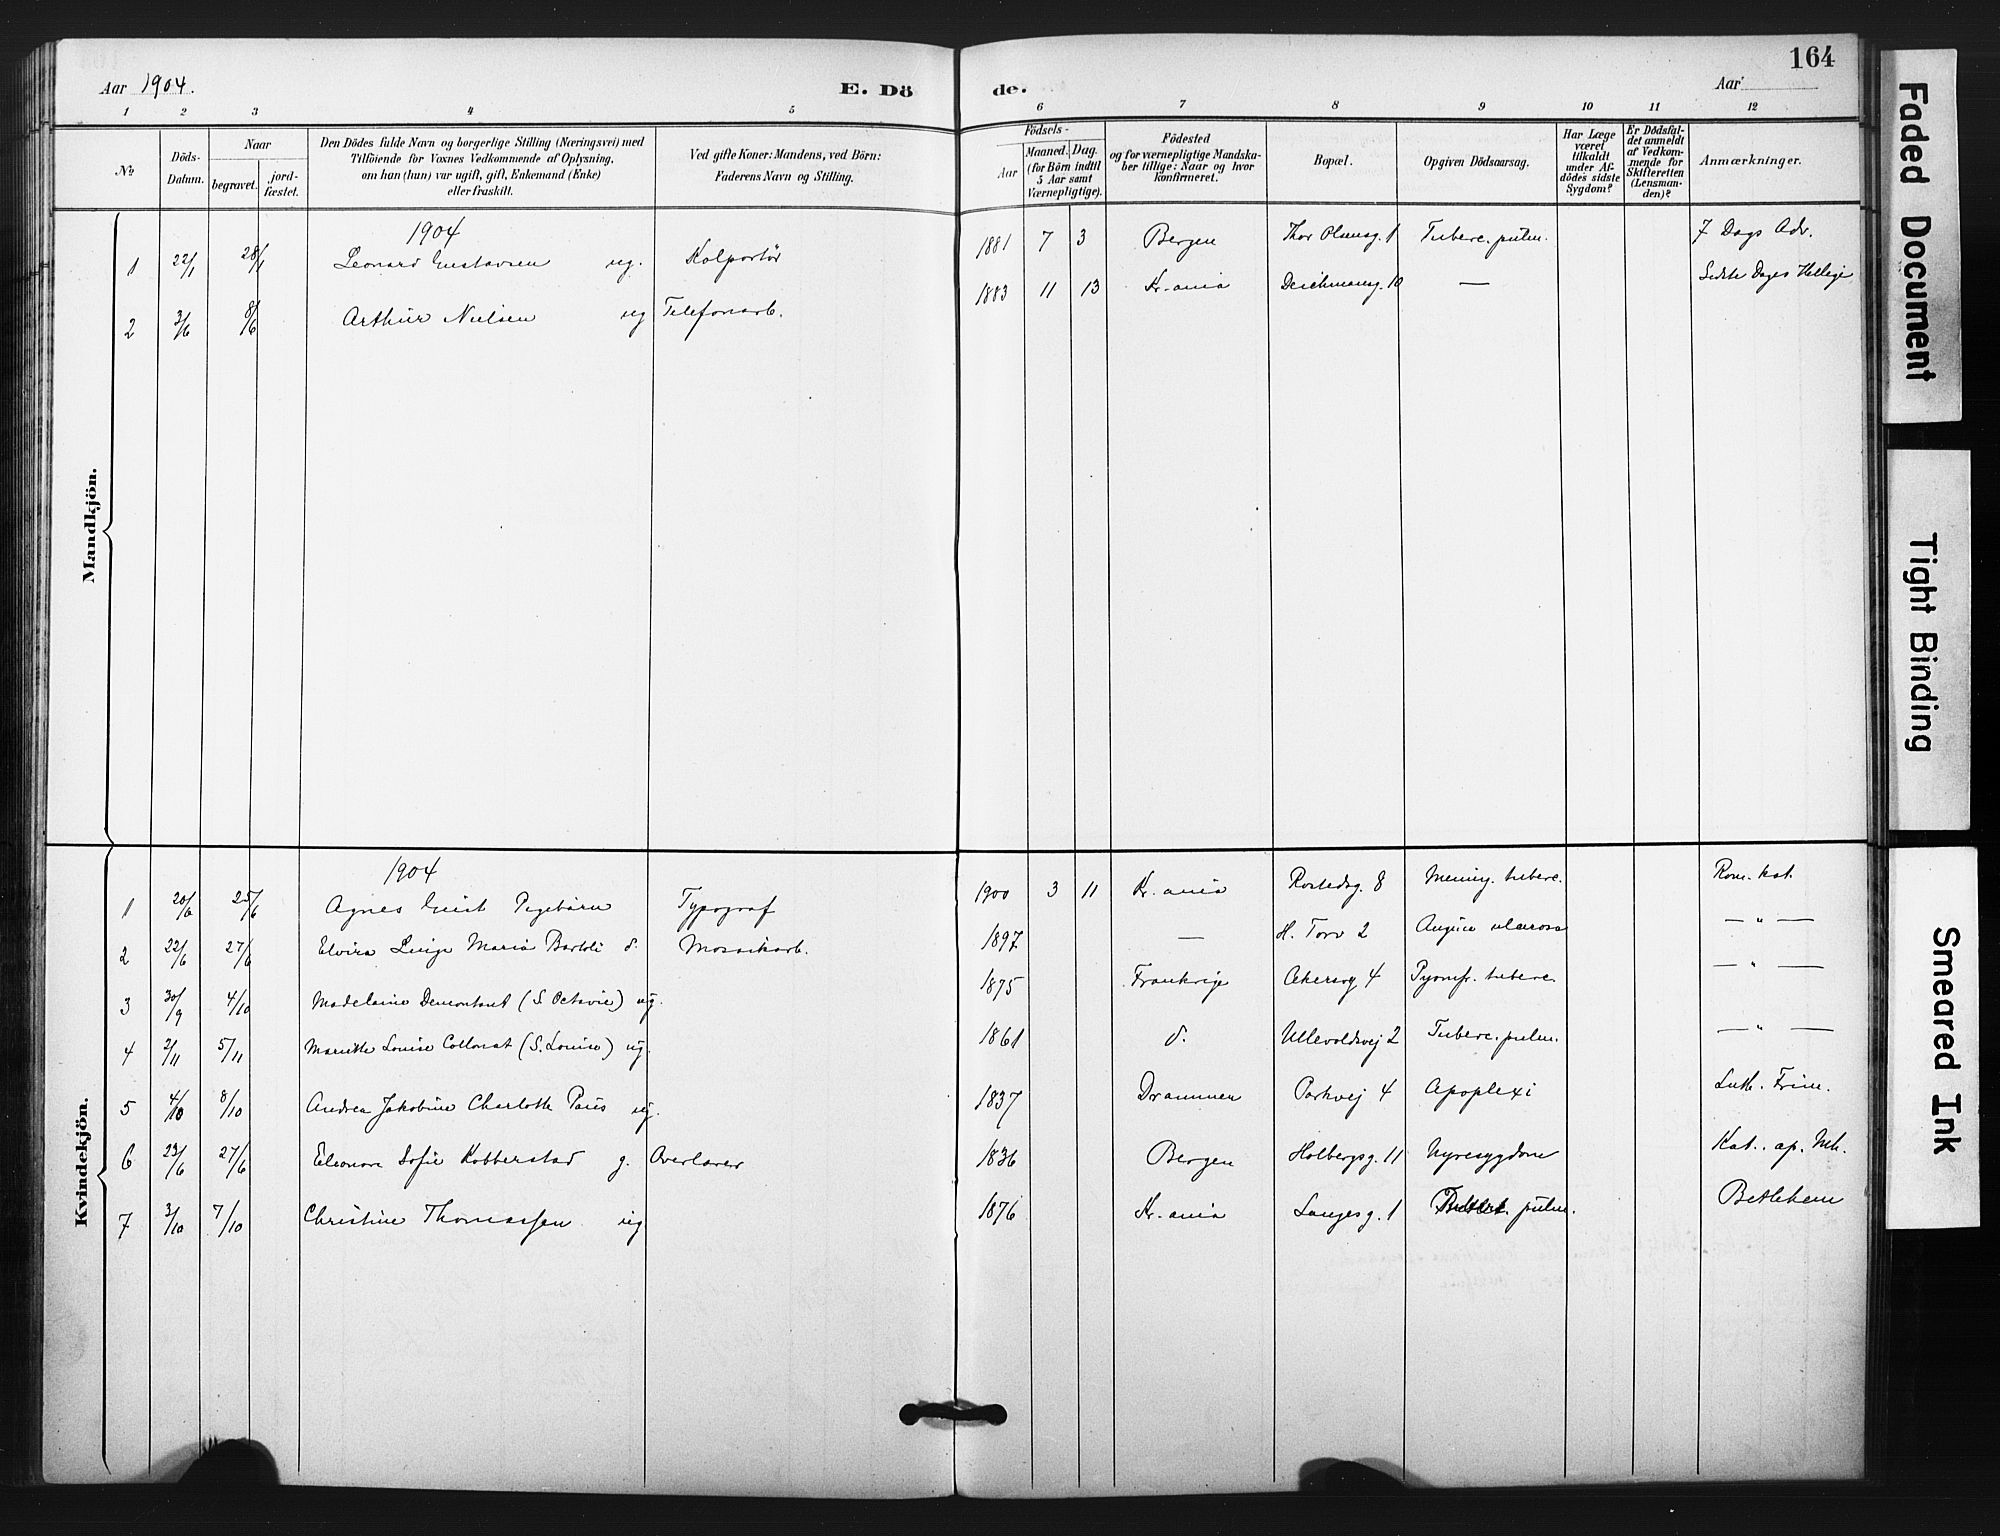 Aar 1904.
E. Dö
de.
164
Aar
1 2 3 4 5
6 7 8 9 10 11 12
No
Döds-Datum.
Naar
begravet.
jord-fæstet.
Den Dödes fulde Navn og borgerlige Stilling (Næringsvei) med
Tilföiende for Voxnes Vedkommende af Oplysning,
om han (hun) var ugift, gift, Enkemand (Enke)
eller fraskilt.
Ved gifte Koner: Mandens, ved Börn:
Faderens Navn og Stilling.
Födsels-
Aar
Maaned. Dag.
(for Börn indtil
5 Aar samt
Værnepligtige).
Födested
og for værnepligtige Mandska-
ber tillige: Naar og hvor
konfirmeret.
Bopæl.
Opgiven Dödsaarsag.
Har Læge
været
tilkaldt
under Af-
dödes sidste
Sygdom?
Er Dödsfal-
det anmeldt
af Vedkom-
mende for
Skifteretten
(Lensman-
den)?
Anmærkninger.
Mandkjön.
1904
1 22/1 28/1 Leonard Gustavsen ug. Kolportör 1881 7 3 Bergen Thor Olsensg. 1 Tuberc. pulm. 7 Dags Adv.
2 3/6 8/6 Arthur Nielsen ug Telefonarb. 1883 11 13 Kr.ania Deichmansg. 10 — Sidste Dages Hellige
Kvindekjön.
1904
1 20/6 25/6 Agnes Typograf 1900 3 11 Kr.ania Rostedsg. 8 Mening. tuberc. Rom. kat.
2 22/6 27/6 Elvira Luigi Maria Bartoli d. Mosaikarb. 1897 — H. Torv 2 Angina ulcerosa — " —
3 30/9 4/10 Madelaine Demontant (S. Octavie) ug. 1875 Frankrige Akersvg 4 tuberc. — " —
4 2/11 5/11 Mariette Louise Collonat (S. Louise) ug. 1861 d. Ullevoldsvej 2 Tuberc. pulm. — " —
5 4/10 8/10 Andrea Jakobine Charlotte Paus ug. 1837 Drammen Parkvej 4 Apoplexi Luth. Frim.
6 23/6 27/6 Eleonora Sofie Kobberstad g. Overlærer 1836 Bergen Holbergsg. 11 Nyresygdom Kat. ap. Mh.
7 3/10 7/10 Christine Thomassen ug 1876 Kr.ania Langesg. 1 pulm. Betlehem
Faded Document
Tight Binding
Smeared Ink